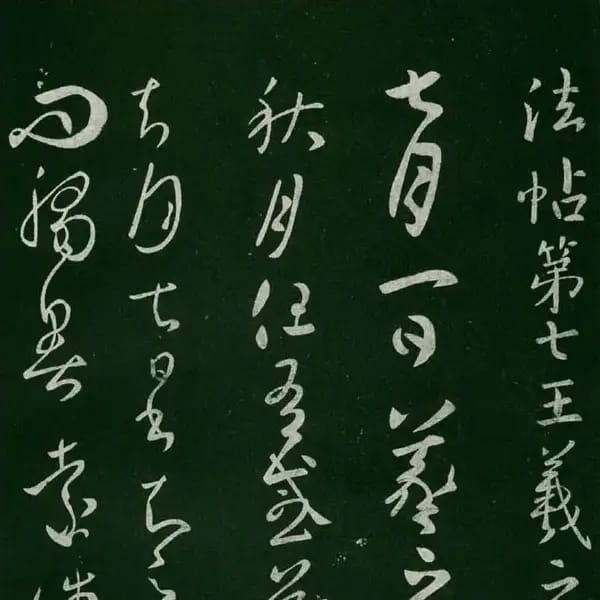 法帖第七王羲之
七月一日羲之
秋月但有感
去月七日書知
問觸暑遠涉